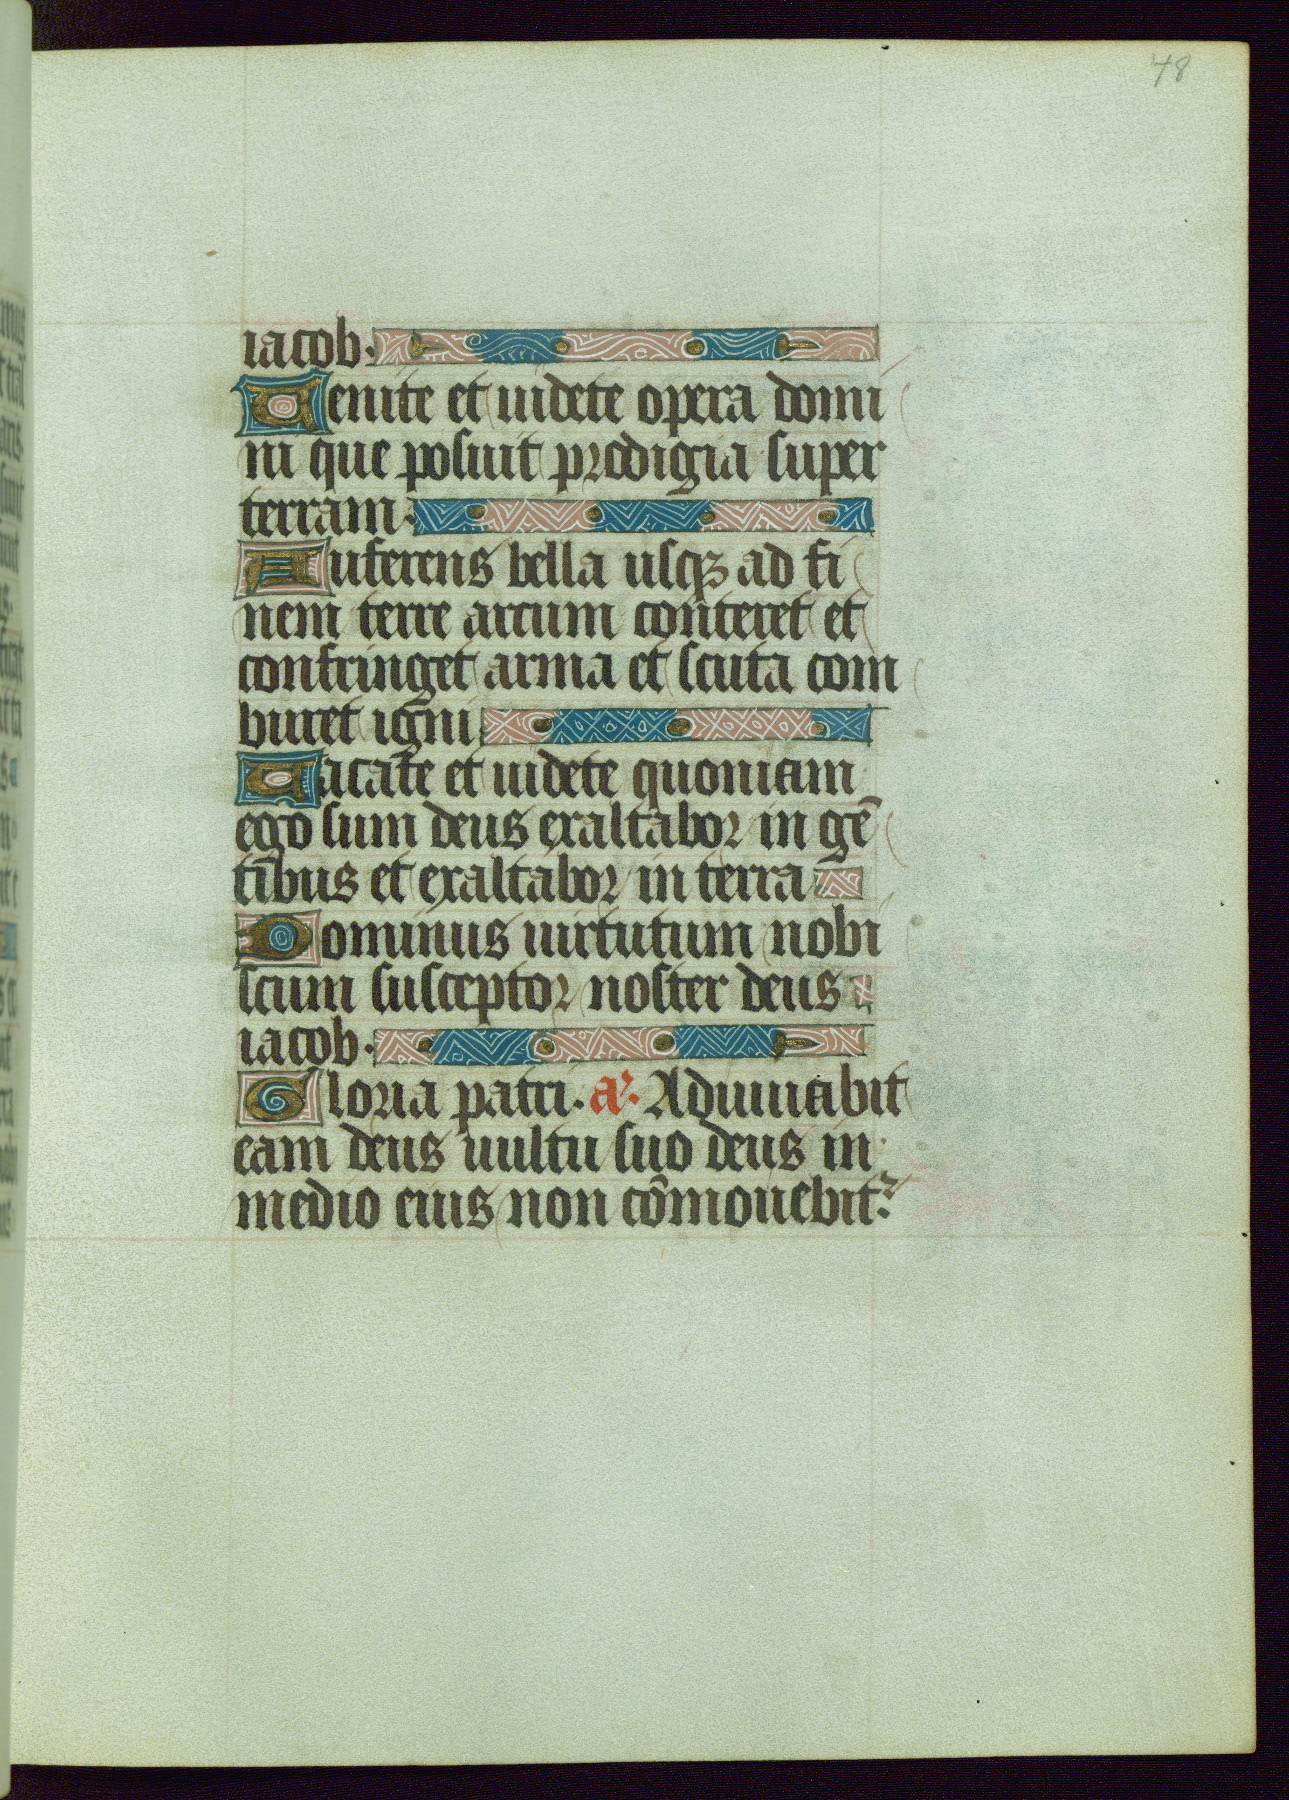 48
iacob.
Uenite et uidete opera domi
ni que posuit prodigia super
terram.
Auferens bella usqꝫ ad fi
nem terre arcum conteret et
confringet arma et scuta com
buret igni
Uacate et uidete quoniam
ego sum deus exaltabor in gē
tibus et exaltabor in terra
Dominus uirtutum nobi
scum susceptor noster deus
iacob.
Gloria patri. a᷒. Adiuuabit
eam deus uultu suo deus in
medio eius non cōmouebit᷒.